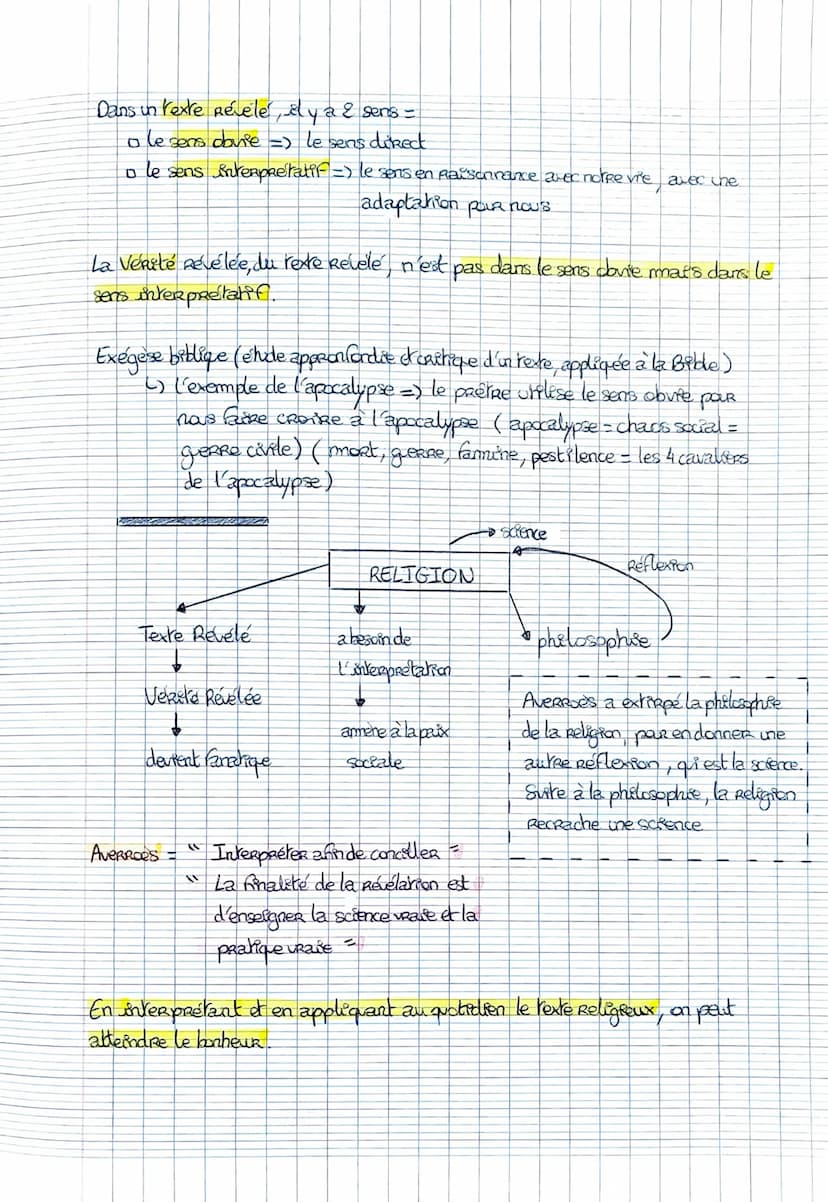 Dans un texte Révélé, il y a 2 sens =
□ le sens obvie => le sens direct
□ le sens interprétatif => le sens en raisonnance avec notre vie, avec une
adaptation pour nous
La Vérité révélée, du texte Révélé, n'est pas dans le sens obvie mais dans le
sens interprétatif.
Exégèse biblique (étude approfondie et critique d'un texte, appliquée à la Bible)
↳ l'exemple de l'apocalypse => le prêtre utilise le sens obvie pour
nous faire croire à l'apocalypse (apocalypse = chaos social =
gerre civile) (mort, gerre, famine, pestilence = les 4 cavaliers
de l'apocalypse)
→ science
RELIGION
Réflexion
Texte Révélé
a besoin de
l'interprétation
philosophie
Vérité Révélée
amène à la paix
sociale
devient fanatique
Averroès a extirpé la philosophie
de la religion, par en donner une
autre réflexion, qui est la science.
Suite à la philosophie, la religion
recrache une science
Averroès = " Interpréter afin de conciller "
" La finalité de la révélation est
d'enseigner la science vraie et la
pratique vraie "
En interprétant et en appliquant au quotidien le texte religieux, on peut
atteindre le bonheur.